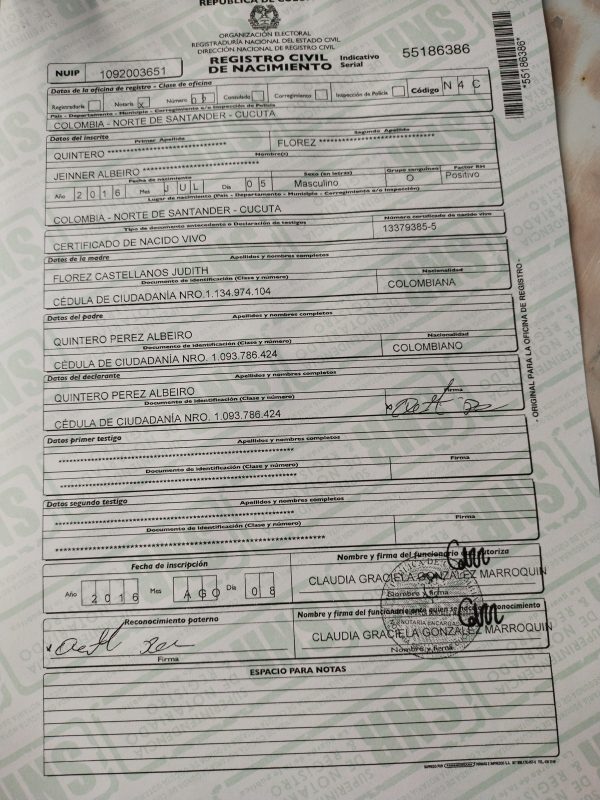 REPÚBLICA DE COLOMBIA
ORGANIZACIÓN ELECTORAL
REGISTRADURÍA NACIONAL DEL ESTADO CIVIL
DIRECCIÓN NACIONAL DE REGISTRO CIVIL
NUIP 1092003651
REGISTRO CIVIL DE NACIMIENTO
Indicativo Serial 55186386
*55186386*
Datos de la oficina de registro - Clase de oficina
Registraduría Notaría X Número Consulado Corregimiento Inspección de Policía Código N 4 C
País - Departamento - Municipio - Corregimiento e/o Inspección de Policía
COLOMBIA - NORTE DE SANTANDER - CUCUTA
Datos del inscrito
Primer Apellido Segundo Apellido
QUINTERO ****************************** FLOREZ ******************************
Nombre(s)
JEINNER ALBEIRO ******************************
Fecha de nacimiento Sexo (en letras) Grupo sanguíneo Factor RH
Año 2 0 1 6 Mes J U L Día 0 5 Masculino O Positivo
Lugar de nacimiento (País - Departamento - Municipio - Corregimiento e/o Inspección)
COLOMBIA - NORTE DE SANTANDER - CUCUTA
Tipo de documento antecedente o Declaración de testigos Número certificado de nacido vivo
CERTIFICADO DE NACIDO VIVO 13379385-5
Datos de la madre Apellidos y nombres completos
FLOREZ CASTELLANOS JUDITH
Documento de identificación (Clase y número) Nacionalidad
CÉDULA DE CIUDADANÍA NRO.1.134.974.104 COLOMBIANA
Datos del padre Apellidos y nombres completos
QUINTERO PEREZ ALBEIRO
Documento de identificación (Clase y número) Nacionalidad
CÉDULA DE CIUDADANÍA NRO. 1.093.786.424 COLOMBIANO
Datos del declarante Apellidos y nombres completos
QUINTERO PEREZ ALBEIRO
Documento de identificación (Clase y número) Firma
CÉDULA DE CIUDADANÍA NRO. 1.093.786.424
Datos primer testigo Apellidos y nombres completos
************************************************************
Documento de identificación (Clase y número) Firma
************************************************************
Datos segundo testigo Apellidos y nombres completos
************************************************************
Documento de identificación (Clase y número) Firma
************************************************************
Fecha de inscripción Nombre y firma del funcionario que autoriza
Año 2 0 1 6 Mes A G O Día 0 8 CLAUDIA GRACIELA GONZALEZ MARROQUIN
Nombre y firma
Reconocimiento paterno Nombre y firma del funcionario ante quien se hace el reconocimiento
CLAUDIA GRACIELA GONZALEZ MARROQUIN
Firma Nombre y firma
ESPACIO PARA NOTAS
- ORIGINAL PARA LA OFICINA DE REGISTRO -
NOTARIA ENCARGADA
SNR